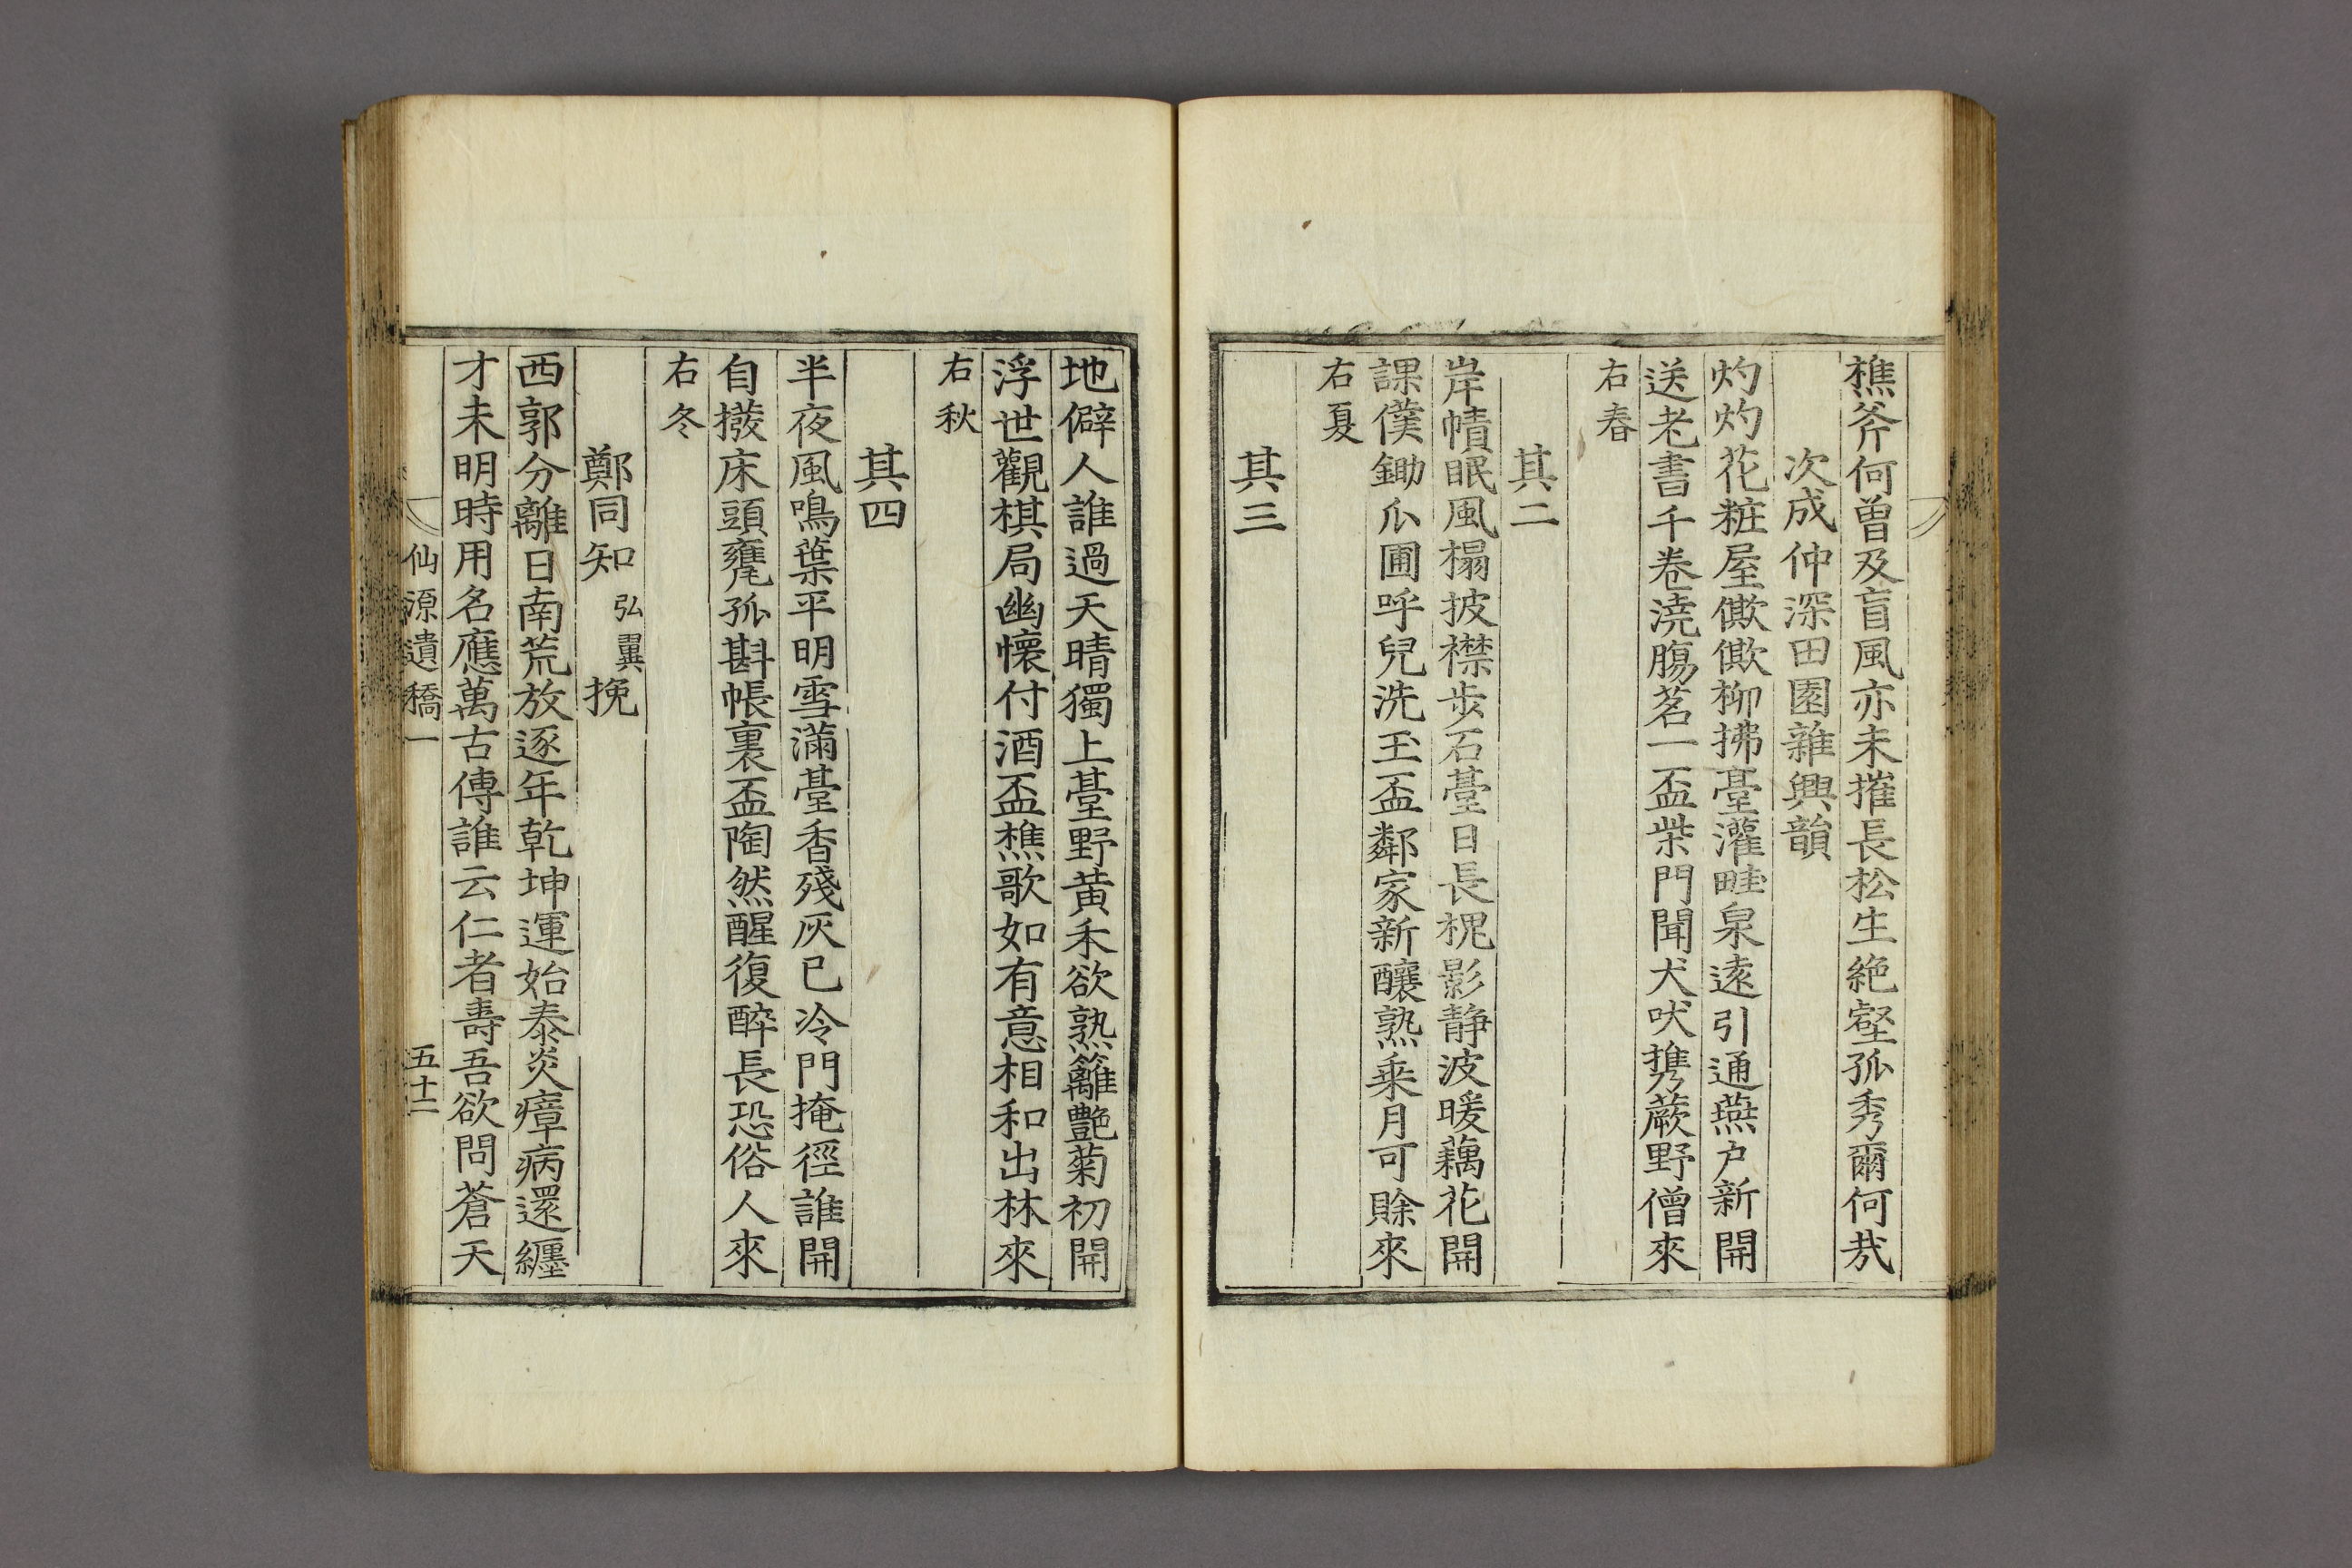 樵斧何曾及盲風亦未摧長松生絶壑孤秀爾何哉
次成仲深田園雜興韻
灼灼花粧屋僛僛柳拂臺灌畦泉遠引通燕戶新開
送老書千卷澆膓茗一盃柴門聞犬吠携蕨野僧來
右春
其二
岸幘眠風榻披襟步石臺日長槐影靜波暖藕花開
課僕鋤瓜圃呼兒洗玉盃鄰家新釀熟乗月可賖來
右夏
其三
地僻人誰過天晴獨上臺野黃禾欲熟籬艶菊初開
浮世觀棋局幽懷付酒盃樵歌如有意相和出林來
右秋
其四
半夜風鳴葉平明雪滿臺香殘灰已冷門掩徑誰開
自撥床頭甕孤斟帳裏盃陶然醒復醉長恐俗人來
右冬
鄭同知弘翼挽
西郭分離日南荒放逐年乾坤運始泰炎瘴病還纏
才未明時用名應萬古傳誰云仁者壽吾欲問蒼天
仙源遺稿一 五十二